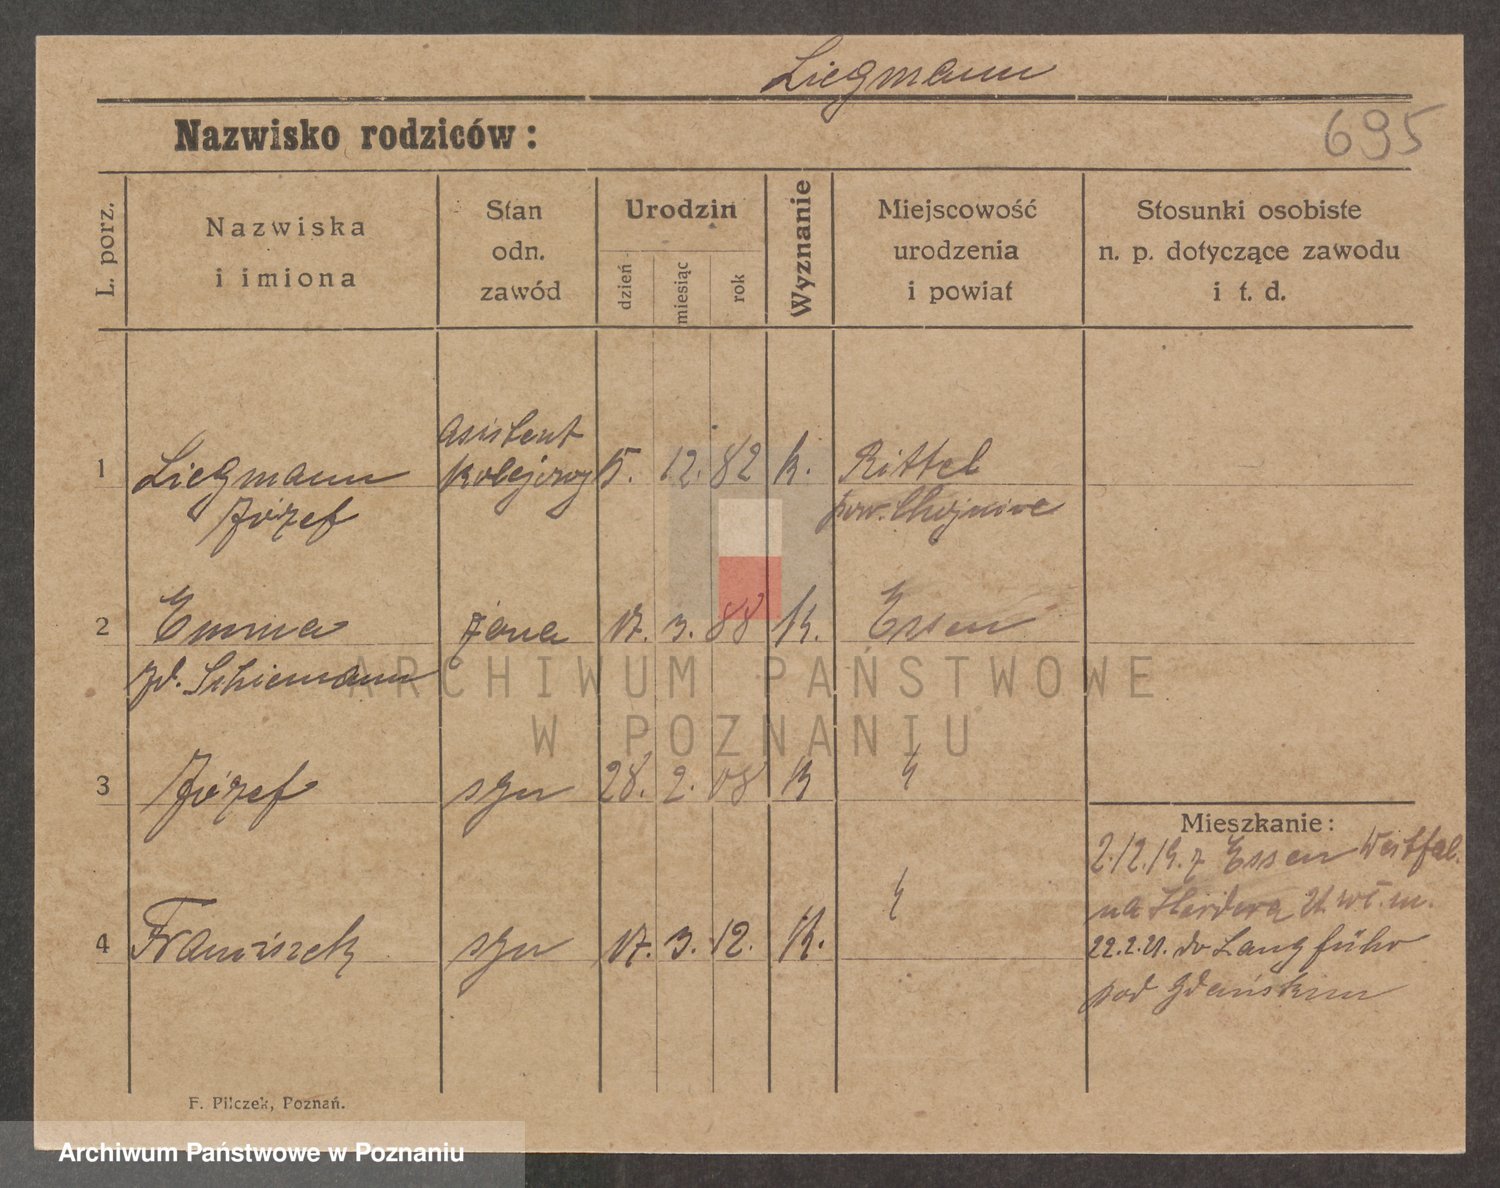 Liegmann
Nazwisko rodziców:
695
L. porz.
Nazwiska
i imiona
Stan
odn.
zawód
Urodzin
dzień
miesiąc
rok
Wyznanie
Miejscowość
urodzenia
i powiat
Stosunki osobiste
n. p. dotyczące zawodu
i t. d.
asistent
1 Liegmann kolejowy 15. 12. 82 k. Rittel
Józef pow. Chojnice
2 Emma żona 17. 3. 88 k. Essen
zd. Schiemann
3 Józef syn 28. 2. 08 k
4 Franciszek syn 17. 3. 12. k.
Mieszkanie:
2.12.19. z Essen Westfal.
na Herdera 21. wł. m.
22.2.21. do Langfuhr
pod Gdańskiem
F. Pilczek, Poznań.
ARCHIWUM PAŃSTWOWE
W POZNANIU
Archiwum Państwowe w Poznaniu